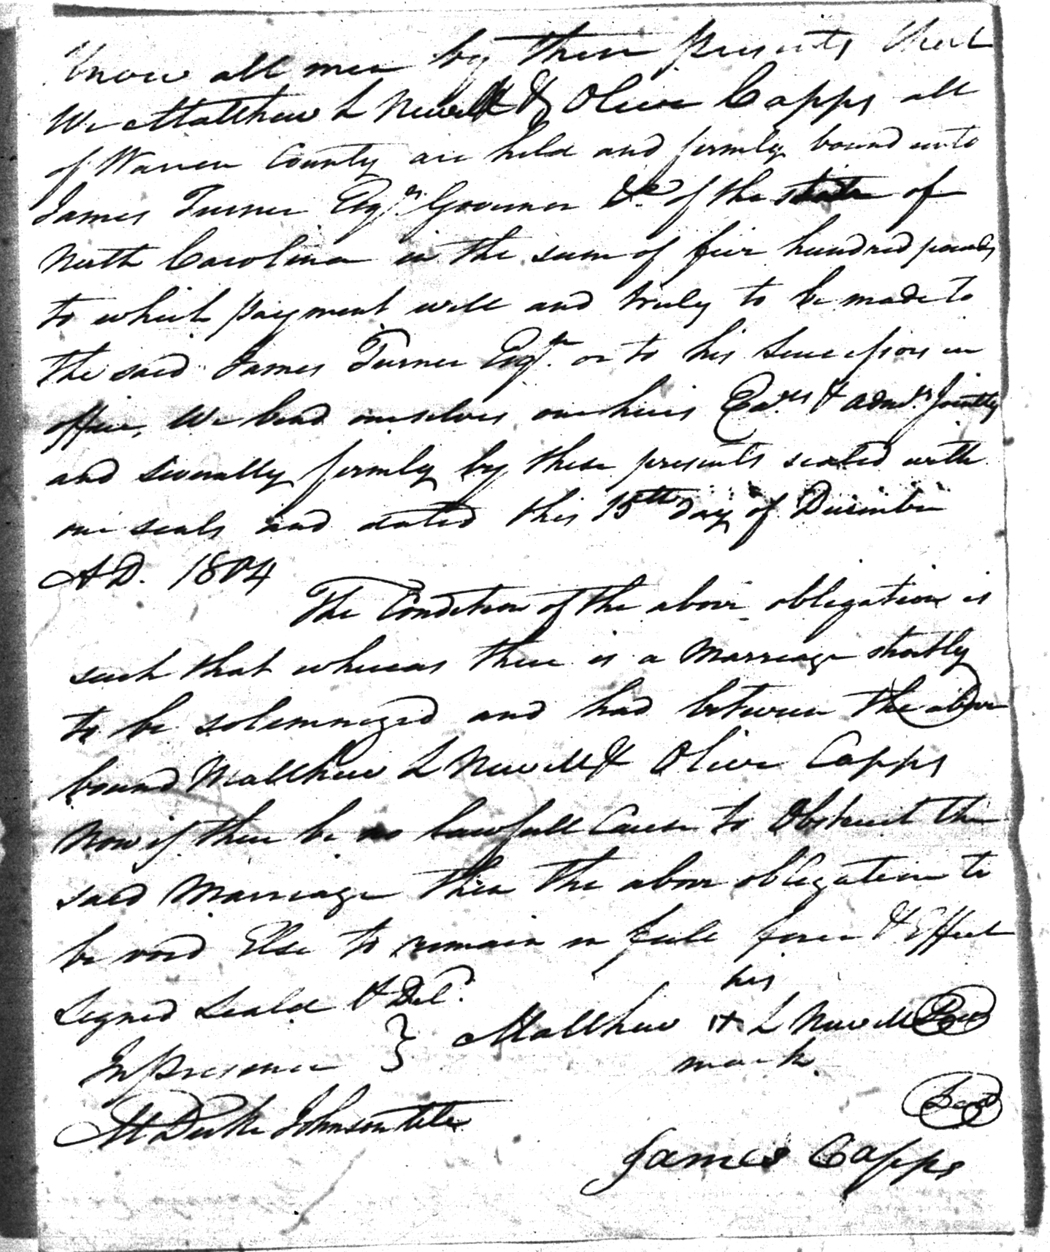 Know all men by these presents that
We Matthew L Newell & Olive Capps all
of Warren County are held and firmly bound unto
James Turner Esqr. Governor &c of the state of
North Carolina in the sum of five hundred pounds
to which payment well and truly to be made to
the said James Turner Esqr. or to his successors in
office, We bind ourselves our heirs Exrs & admrs Jointly
and severally firmly by these presents sealed with
our seals and dated this 15th day of December
AD. 1804
The Condition of the above obligation is
such that whereas there is a Marriage shortly
to be solemnized and had between the above
bound Matthew L Newell & Olive Capps
Now if there be no lawfull Cause to Obstruct the
said Marriage then the above obligation to
be void Else to remain in full force & Effect
Signed Seald & Deld.
his
Matthew L Newell Seal
In presence
mark.
Johnson
Seal
James Capps